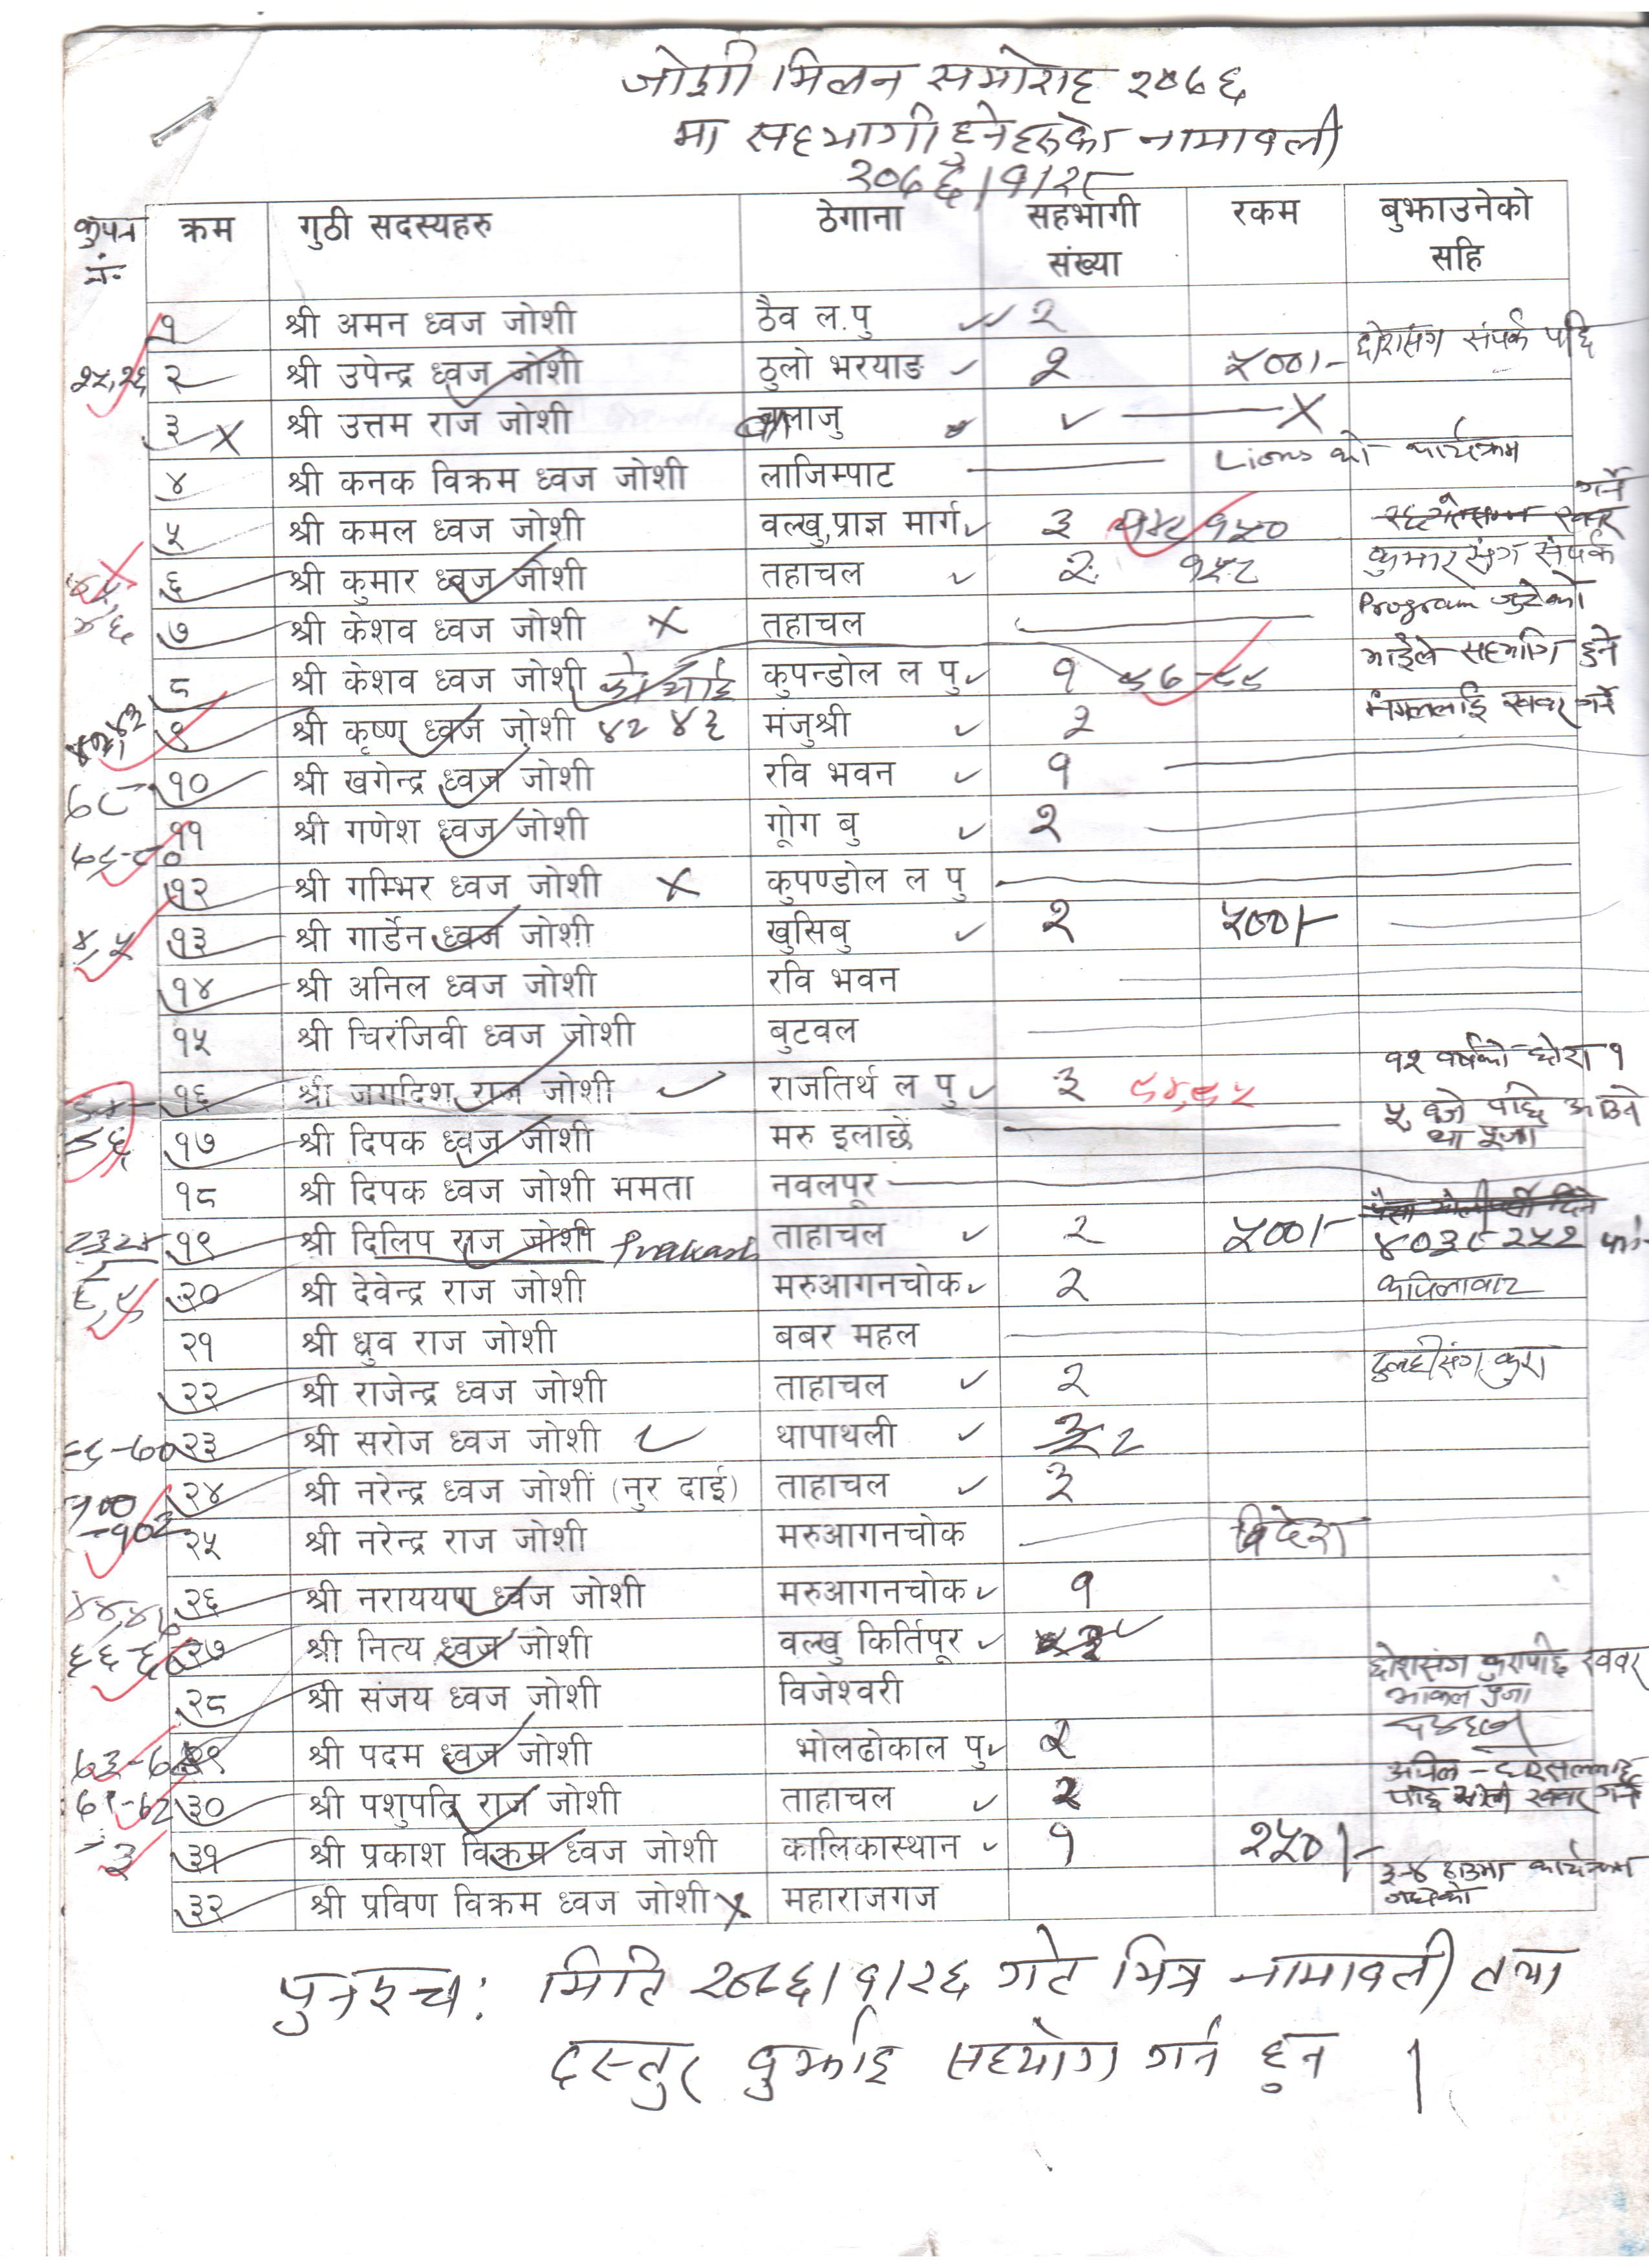 जोशी मिलन समारोह २०७६
मा सहभागी हुनेहरुको नामावली
२०७६/१/२८
कुपन नं. क्रम गुठी सदस्यहरु ठेगाना सहभागी संख्या रकम बुझाउनेको सहि
१ श्री अमन ध्वज जोशी ठैव ल.पु २
छोरासंग संपर्क पछि
२५,२६ २ श्री उपेन्द्र ध्वज जोशी ठुलो भरयाङ २ ५००।-
३ X श्री उत्तम राज जोशी बलाजु X
४ श्री कनक विक्रम ध्वज जोशी लाजिम्पाट Lions को कार्यक्रम
५ श्री कमल ध्वज जोशी वल्खु,प्राज्ञ मार्ग ३ १५० खबर गर्ने
६ श्री कुमार ध्वज जोशी तहाचल २ कुमार संग संपर्क
७ श्री केशव ध्वज जोशी X तहाचल Program जुटेको
८ श्री केशव ध्वज जोशी को भाई कुपन्डोल ल पु १ भाईले सहभागि हुने
९ श्री कृष्ण ध्वज जोशी ४२ ४३ मंजुश्री २ मंगललाई खबर गर्ने
७८ १० श्री खगेन्द्र ध्वज जोशी रवि भवन १
७९-८० ११ श्री गणेश ध्वज जोशी गोंग बु २
१२ श्री गम्भिर ध्वज जोशी X कुपण्डोल ल पु
४,५ १३ श्री गार्डेन ध्वज जोशी खुसिबु २ ५००।-
१४ श्री अनिल ध्वज जोशी रवि भवन
१५ श्री चिरंजिवी ध्वज जोशी बुटवल
१६ श्री जगदिश राज जोशी राजतिर्थ ल पु ३ ९४,९५ १२ वर्षको छोरा १
१७ श्री दिपक ध्वज जोशी मरु इलाछें ५ बजे पछि आउने था पूजा
१८ श्री दिपक ध्वज जोशी ममता नवलपूर
१९ श्री दिलिप राज जोशी Prakash ताहाचल २ ५००।-
८,९ २० श्री देवेन्द्र राज जोशी मरुआगनचोक २ कपिलाबाट
२१ श्री ध्रुव राज जोशी बबर महल
२२ श्री राजेन्द्र ध्वज जोशी ताहाचल २ दुलहीसंग कुरा
६९-७० २३ श्री सरोज ध्वज जोशी थापाथली ३ २
१००-१०२ २४ श्री नरेन्द्र ध्वज जोशीं (नुर दाई) ताहाचल ३
२५ श्री नरेन्द्र राज जोशी मरुआगनचोक विदेश
२६ श्री नराययण ध्वज जोशी मरुआगनचोक १
२७ श्री नित्य ध्वज जोशी वल्खु किर्तिपूर
२८ श्री संजय ध्वज जोशी विजेश्वरी छोरासंग कुरापछि खबर
२९ श्री पदम ध्वज जोशी भोलढोकाल पु २
७१-७२ ३० श्री पशुपति राज जोशी ताहाचल २ पछि खबर गर्ने
३ ३१ श्री प्रकाश विक्रम ध्वज जोशी कालिकास्थान १ २५०।-
३२ श्री प्रविण विक्रम ध्वज जोशी X महाराजगज ३-४ ठाउमा कार्यक्रम
पुनश्च: मिति २०७६/१/२६ गते भित्र नामावली तथा
दस्तुर बुझाई सहयोग गर्न हुन ।